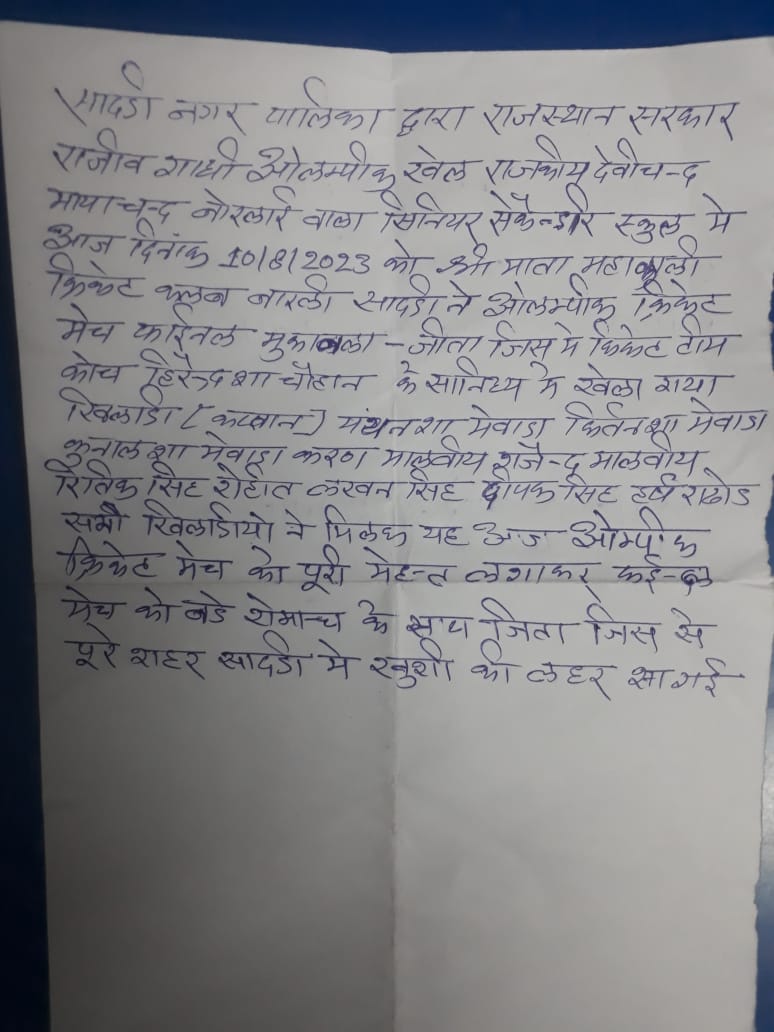 सादडी नगर पालिका द्वारा राजस्थान सरकार
राजीव गाधी ओलम्पीक खेल राजकीय देवीचन्द
मायाचन्द बोरलाई वाला सिनियर सेकैन्डरि स्कुल मे
आज दिनांक 10/8/2023 को श्री माता महाकाली
क्रिकेट कलब बारली सादडी ने ओलम्पीक क्रिकेट
मेच फाईनल मुकाबला - जीता जिस मे क्रिकेट टीम
कोच हिरेन्द्र शा चौहान के सानिध्य मे खेला गया
खिलाडि (कप्तान) मंथन शा मेवाडा किर्तन शा मेवाडा
कुनाल शा मेवाडा करण मालवीय राजेन्द्र मालवीय
रितिक सिह लखन सिह दीपक सिह हर्ष राठोड
सभी खिलाडियो ने मिलक यह आज ओम्पीक
क्रिकेट मेच को पूरी मेहन्त लगाकर
मेच को बडे रोमान्च के साथ जिता जिस से
पूरे शहर सादडी मे खुशी की लहर आ गई